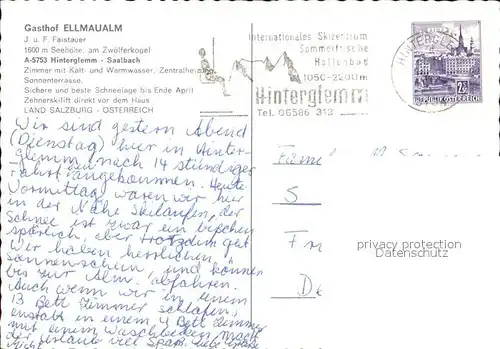 Gasthof ELLMAUALM
J. u. F. Faistauer
1600 m Seehöhe; am Zwölferkogel
A-5753 Hinterglemm - Saalbach
Zimmer mit Kalt- und Warmwasser, Zentralheizung
Sonnenterrasse.
Sichere und beste Schneelage bis Ende April
Zehnerskilift direkt vor dem Haus
LAND SALZBURG - ÖSTERREICH
Internationales Skizentrum
Sommerfrische
Hallenbad
1050-2200m
Hinterglemm
Tel. 06586 313
HINTERGLE
REPUBLIK ÖSTERREICH
Wir sind gestern Abend
(Dienstag) hier in Hinter-
glemm, nach 14 stündiger
Fahrt angekommen. Heute
Vormittag waren wir hier
in der Nähe Skilaufen, der
Schnee ist zwar ein bißchen
spärlich, aber trotzdem gut.
Wir haben herrlichen
Sonnenschein, und können
bis zur Alm abfahren.
Auch wenn wir in einem
13 Bett Zimmer schlafen,
anstatt in einem 4 Bett Zimmer
mit einem Waschbecken, macht
der Urlaub viel Spaß.
Fam
S
Fr
De
privacy protection
Ansichtskartenversand.com